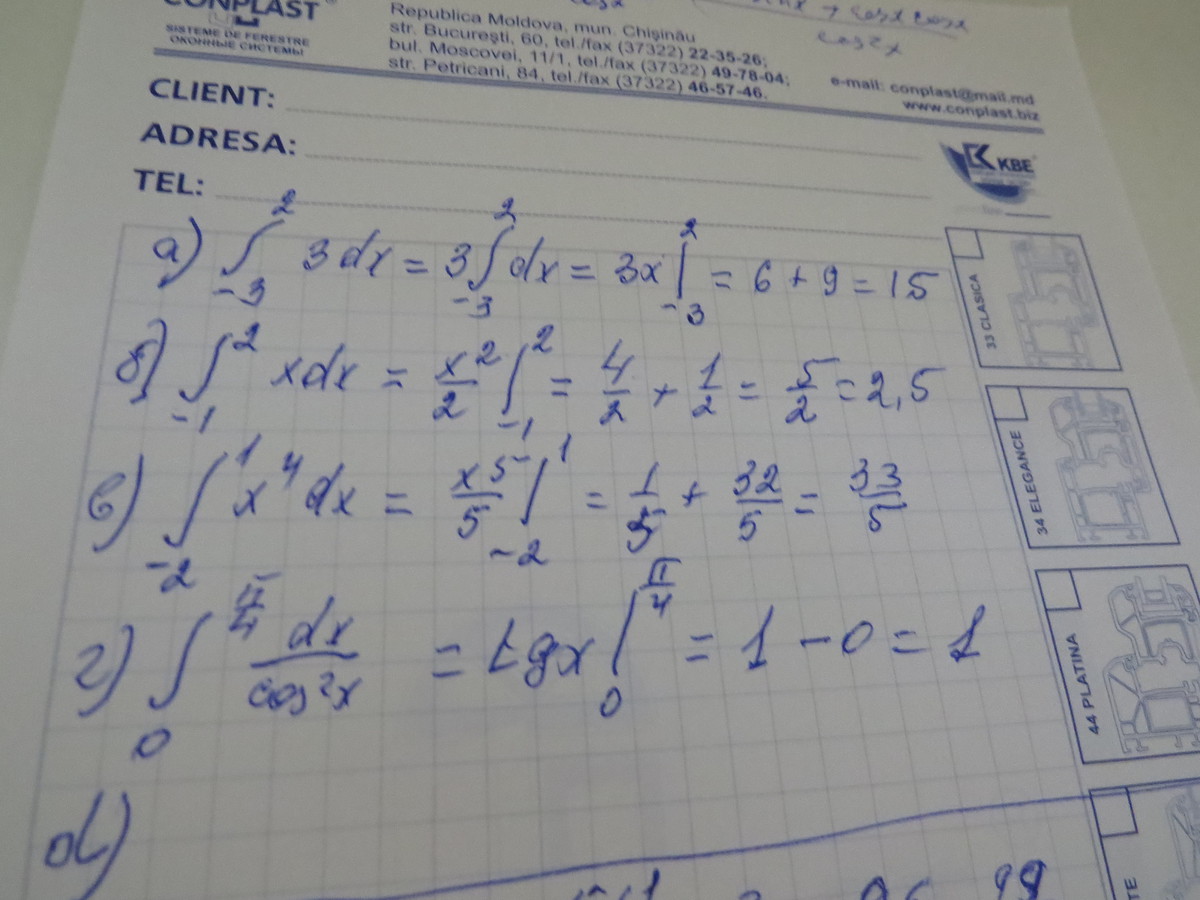 CONPLAST
SISTEME DE FERESTRE
ОКОННЫЕ СИСТЕМЫ
Republica Moldova, mun. Chişinău
str. Bucureşti, 60, tel./fax (37322) 22-35-26;
bul. Moscovei, 11/1, tel./fax (37322) 49-78-04;
str. Petricani, 84, tel./fax (37322) 46-57-46.
e-mail: conplast@mail.md
www.conplast.biz
CLIENT:
ADRESA:
TEL:
KBE
а) ∫_{-3}^{2} 3dx = 3∫_{-3}^{2} dx = 3x|_{-3}^{2} = 6 + 9 = 15
б) ∫_{-1}^{2} xdx = x²/2 |_{-1}^{2} = 4/2 + 1/2 = 5/2 = 2,5
в) ∫_{-2}^{1} x⁴dx = x⁵/5 |_{-2}^{1} = 1/5 + 32/5 = 33/5
г) ∫_{0}^{π/4} dx/cos²x = tgx|_{0}^{π/4} = 1 - 0 = 1
d)
33 CLASICA
34 ELEGANCE
44 PLATINA